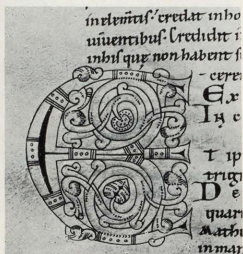 in elem̄tis. credat in ho
uiuentibus. Credidit i
in his quę non habent s
cere
Ex
In c
t ip
trigi
De
quar
Mathi
in man